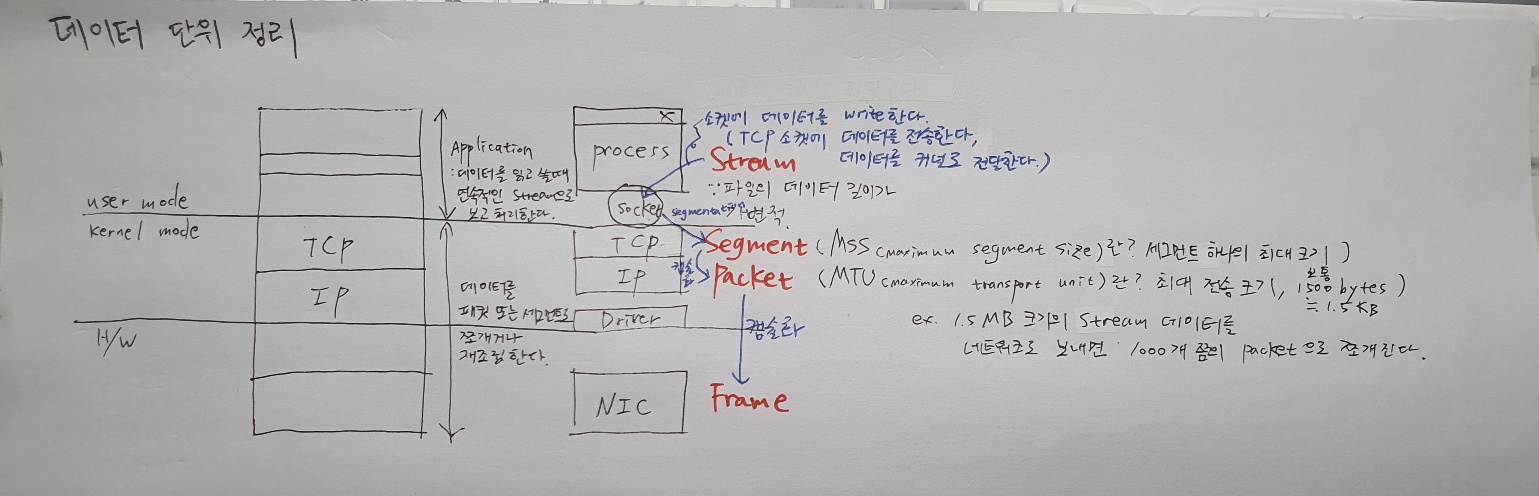 데이터 단위 정리
user mode
kernel mode
H/W
TCP
IP
Application
: 데이터를 읽고 쓸때
연속적인 Stream으로
보고 처리한다.
데이터를
패킷 또는 세그먼트로
쪼개거나
재조립한다.
X
process
socket
TCP
IP
Driver
NIC
소켓에 데이터를 write한다.
(TCP 소켓에 데이터를 전송한다,
데이터를 커널로 전달한다.)
Stream
∵파일의 데이터 길이가
가변적.
Segment (MSS (maximum segment size)란? 세그먼트 하나의 최대 크기)
Packet (MTU (maximum transport unit)란? 최대 전송 크기, 보통 1500 bytes)
≒ 1.5KB
ex. 1.5MB 크기의 Stream 데이터를
네트워크로 보내면 1000개 쯤의 packet으로 쪼개진다.
캡슐화
캡슐화
Frame